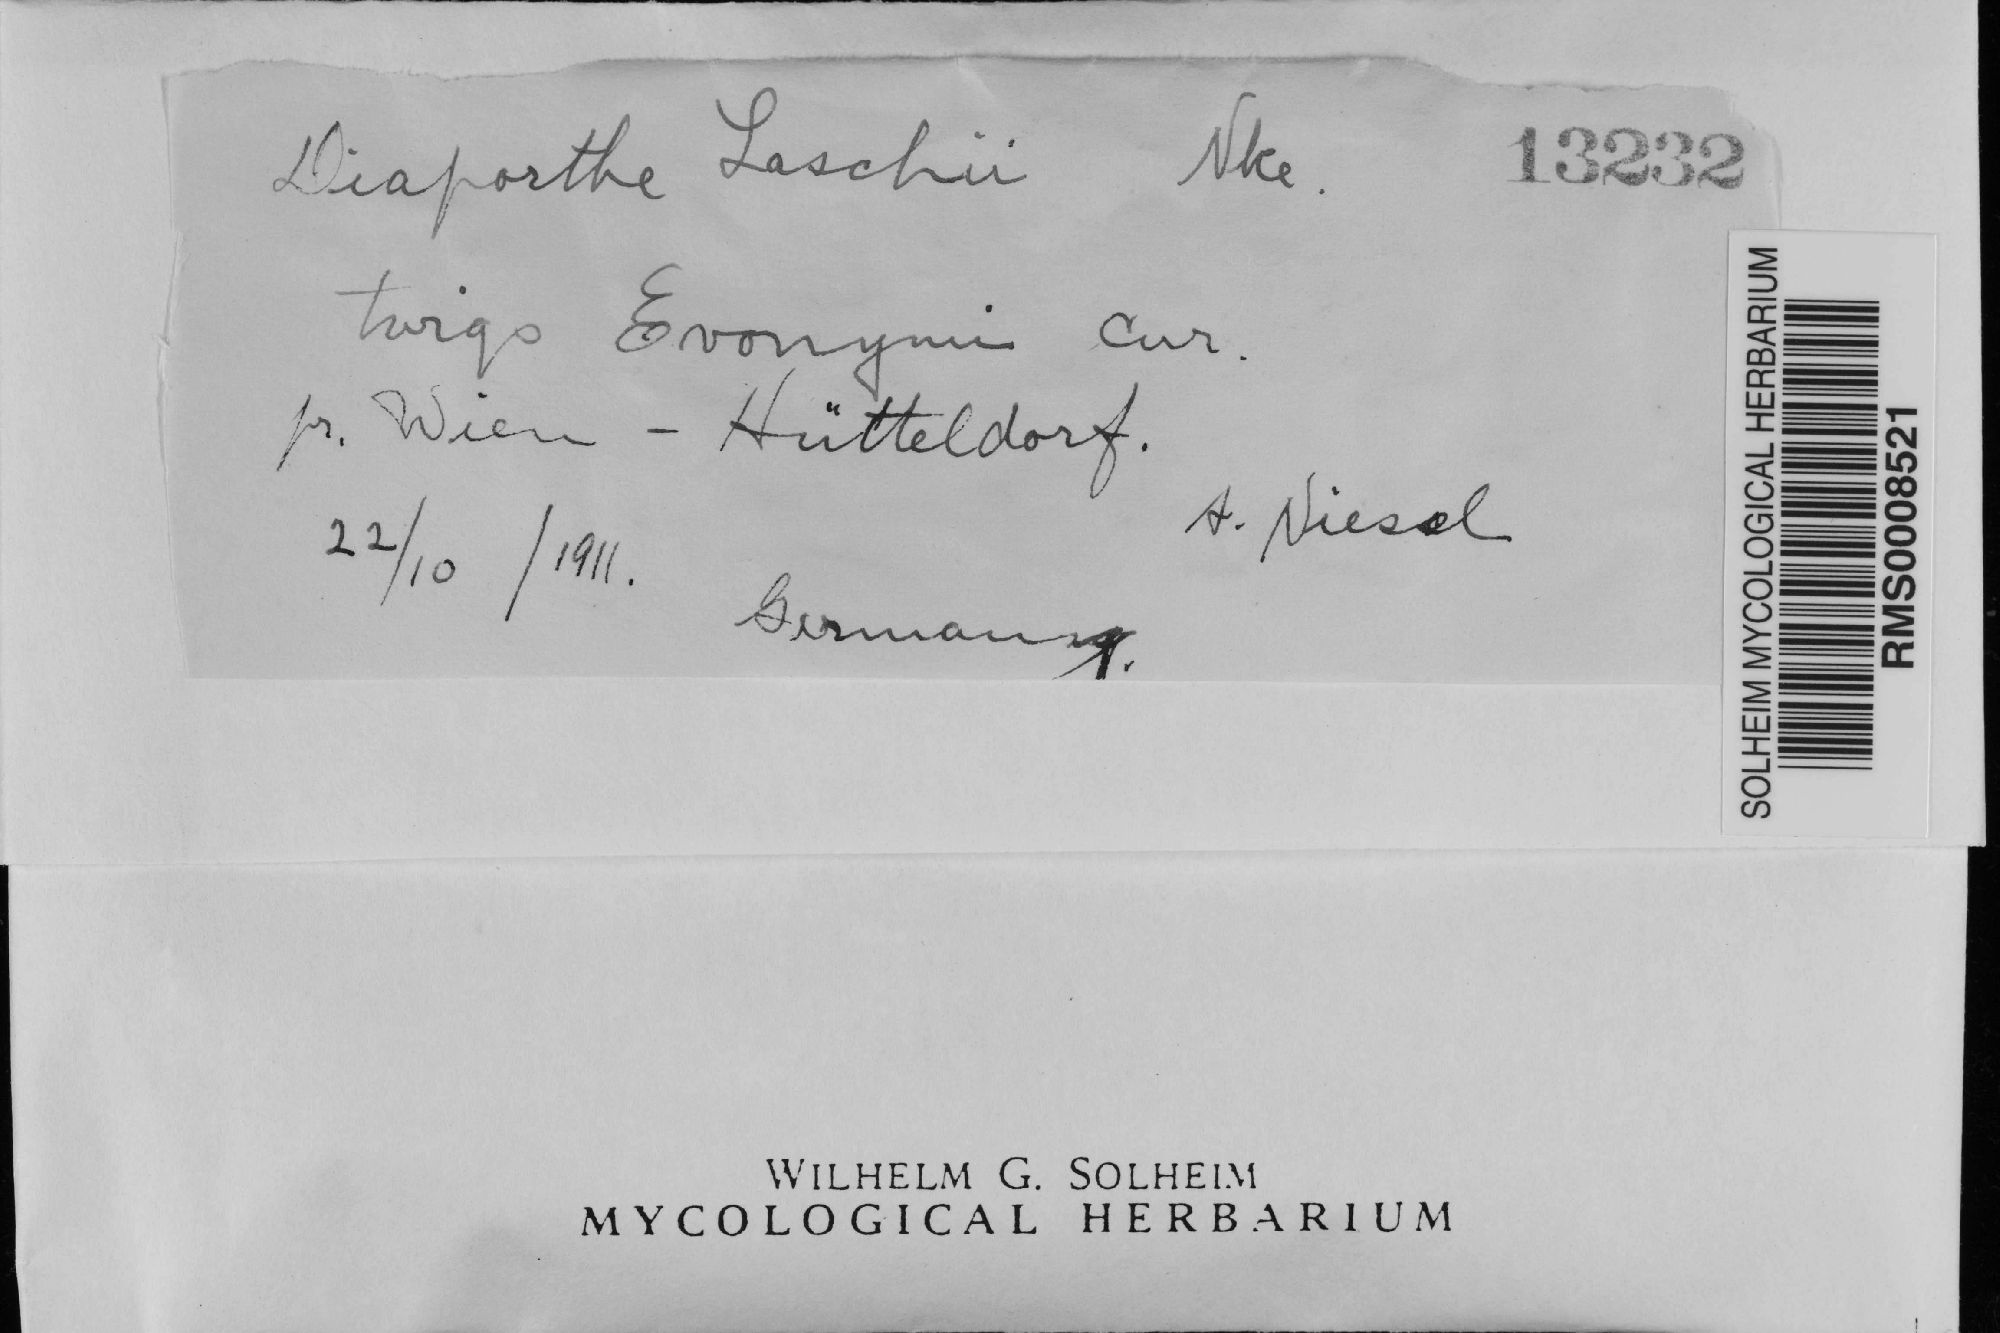 Diaporthe Laschii Nke. 13232
twigs Evonymi eur.
pr. Wien - Hütteldorf.
22/10 /1911.
A. Niesel
Germany.
SOLHEIM MYCOLOGICAL HERBARIUM
RMS0008521
WILHELM G. SOLHEIM
MYCOLOGICAL HERBARIUM